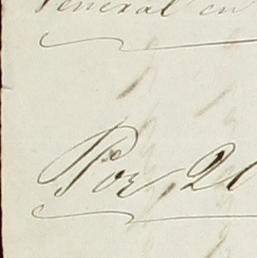 General en
Por 20